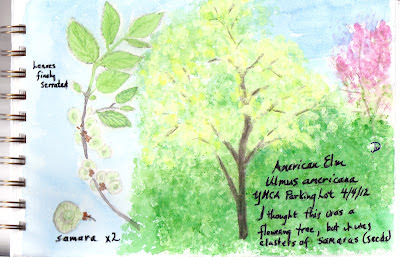 Leaves
finely
serrated
samara x2
American Elm
Ulmus americana
YMCA Parking Lot 4/4/12
I thought this was a
flowering tree, but it was
clusters of samaras (seeds)